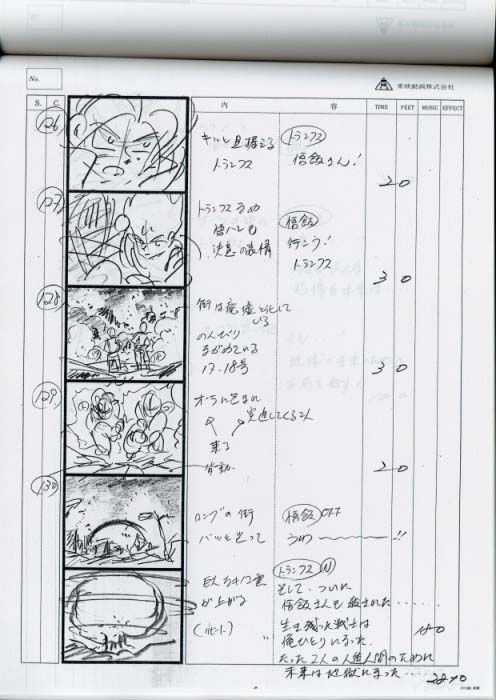 No.
東映動画株式会社
S. C. 内 容 TIME FEET MUSIC EFFECT
126
キッと見据える
トランクス
トランクス
悟飯さん!
2 0
127
トランクスみつめ
悟ハンも
決意の表情
悟飯
行こう!
トランクス
3 0
128
街は廃墟と化して
いる
のんびり
ながめている
17.18号
3 0
129
オーラに包まれ
突進してくる2人
2 0
130
ロングの街
バッと光って
悟飯 OFF
うわ〜〜!!
巨大なキノコ雲
が上がる
トランクス N
そして、ついに
悟飯さんも殺された......
生き残った戦士は
俺ひとりになった.
たった2人の人造人間のために
未来は地獄になった......
18 0
28 + 0